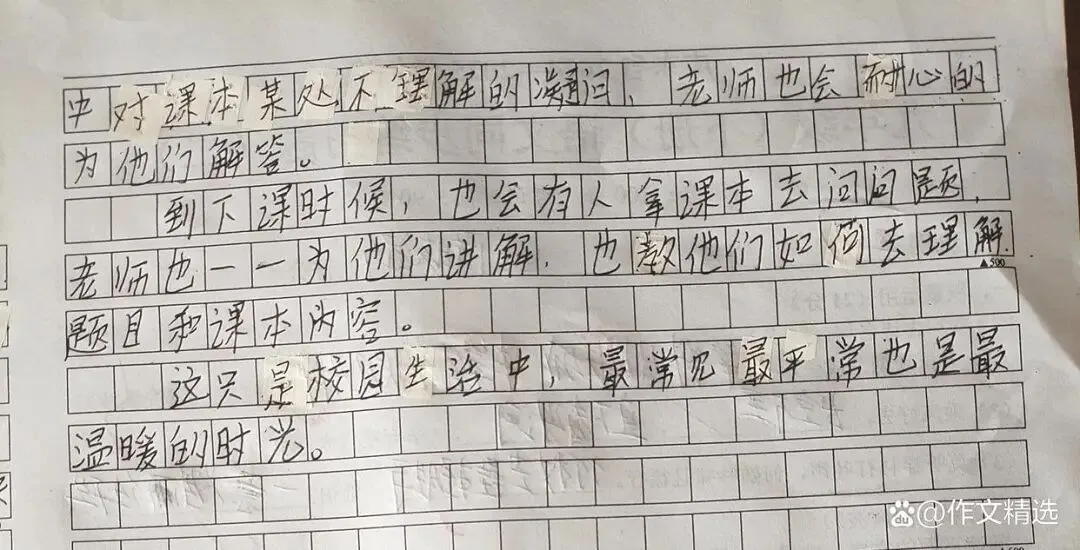 中对课本某处不理解的疑问，老师也会耐心的
为他们解答。
到下课时候，也会有人拿课本去问问题，
老师也一一为他们讲解．也教他们如何去理解
▲500
题目和课本内容。
这只是校园生活中，最常见最平常也是最
温暖的时光。
@作文精选